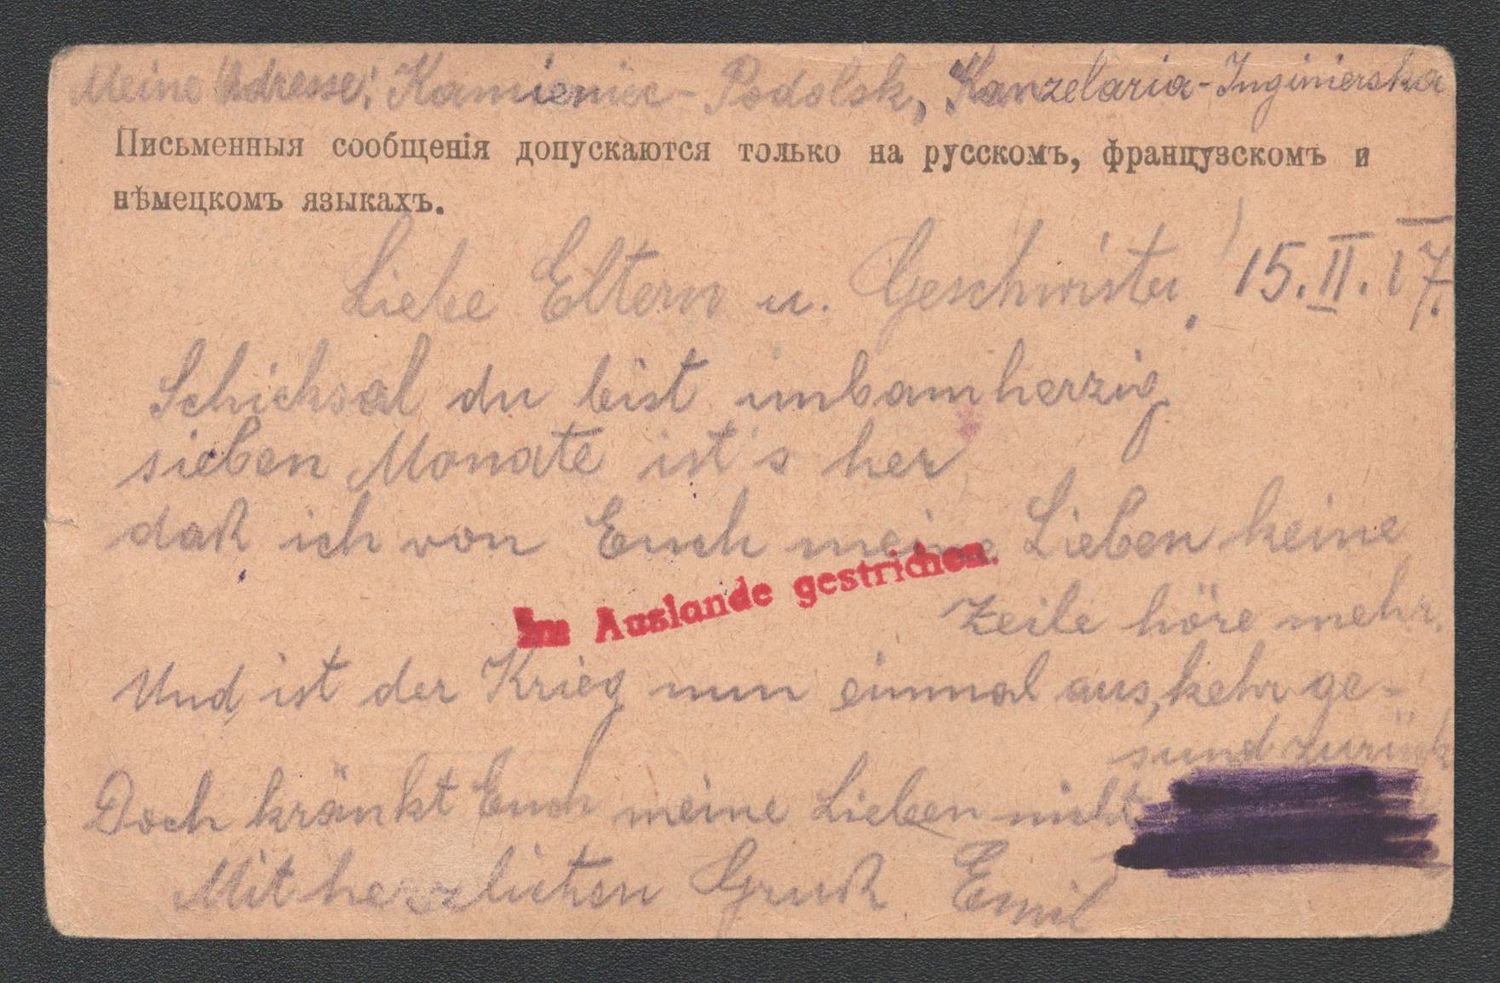 Meine Adresse: Kamieniec-Podolsk, Kanzelaria-Inginierska
Письменныя сообщенія допускаются только на русскомъ, французскомъ и
нѣмецкомъ языкахъ.
Liebe Eltern u. Geschwister! 15.II.17.
Schicksal du bist unbarmherzig
sieben Monate ist's her
daß ich von Euch meine Lieben keine
Im Auslande gestrichen.
Zeile höre mehr.
Und ist der Krieg nun einmal aus, kehr ge-
sund zurück
Doch kränkt Euch meine Lieben nicht
Mit herzlichen Gruß. Emil